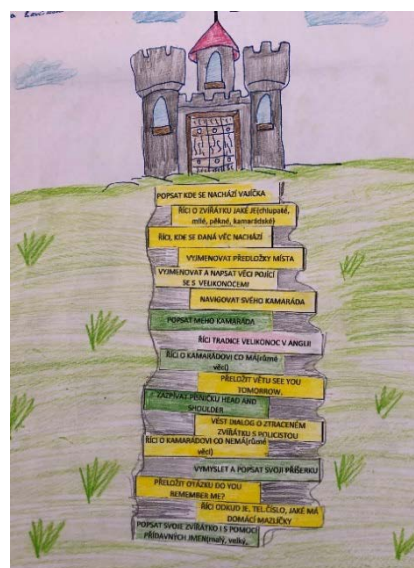 POPSAT KDE SE NACHÁZÍ VAJÍČKA
ŘÍCI O ZVÍŘÁTKU JAKÉ JE(chlupaté,
milé, pěkné, kamarádské)
ŘÍCI, KDE SE DANÁ VĚC NACHÁZÍ
VYJMENOVAT PŘEDLOŽKY MÍSTA
VYJMENOVAT A NAPSAT VĚCI POJÍCÍ
SE S VELIKONOCEMI
NAVIGOVAT SVÉHO KAMARÁDA
POPSAT MÉHO KAMARÁDA
ŘÍCI TRADICE VELIKONOC V ANGLII
ŘÍCI O KAMARÁDOVI CO MÁ(různé
věci)
PŘELOŽIT VĚTU SEE YOU
TOMORROW.
ZAZPÍVAT PÍSNIČKU HEAD AND
SHOULDER
VÉST DIALOG O ZTRACENÉM
ZVÍŘÁTKU S POLICISTOU
ŘÍCI O KAMARÁDOVI CO NEMÁ(různé
věci)
VYMYSLET A POPSAT SVOJI PŘÍŠERKU
PŘELOŽIT OTÁZKU DO YOU
REMEMBER ME?
ŘÍCI ODKUD JE, TEL.ČÍSLO, JAKÉ MÁ
DOMÁCÍ MAZLÍČKY
POPSAT SVOJE ZVÍŘÁTKO I S POMOCÍ
PŘÍDAVNÝCH JMEN(malý, velký,